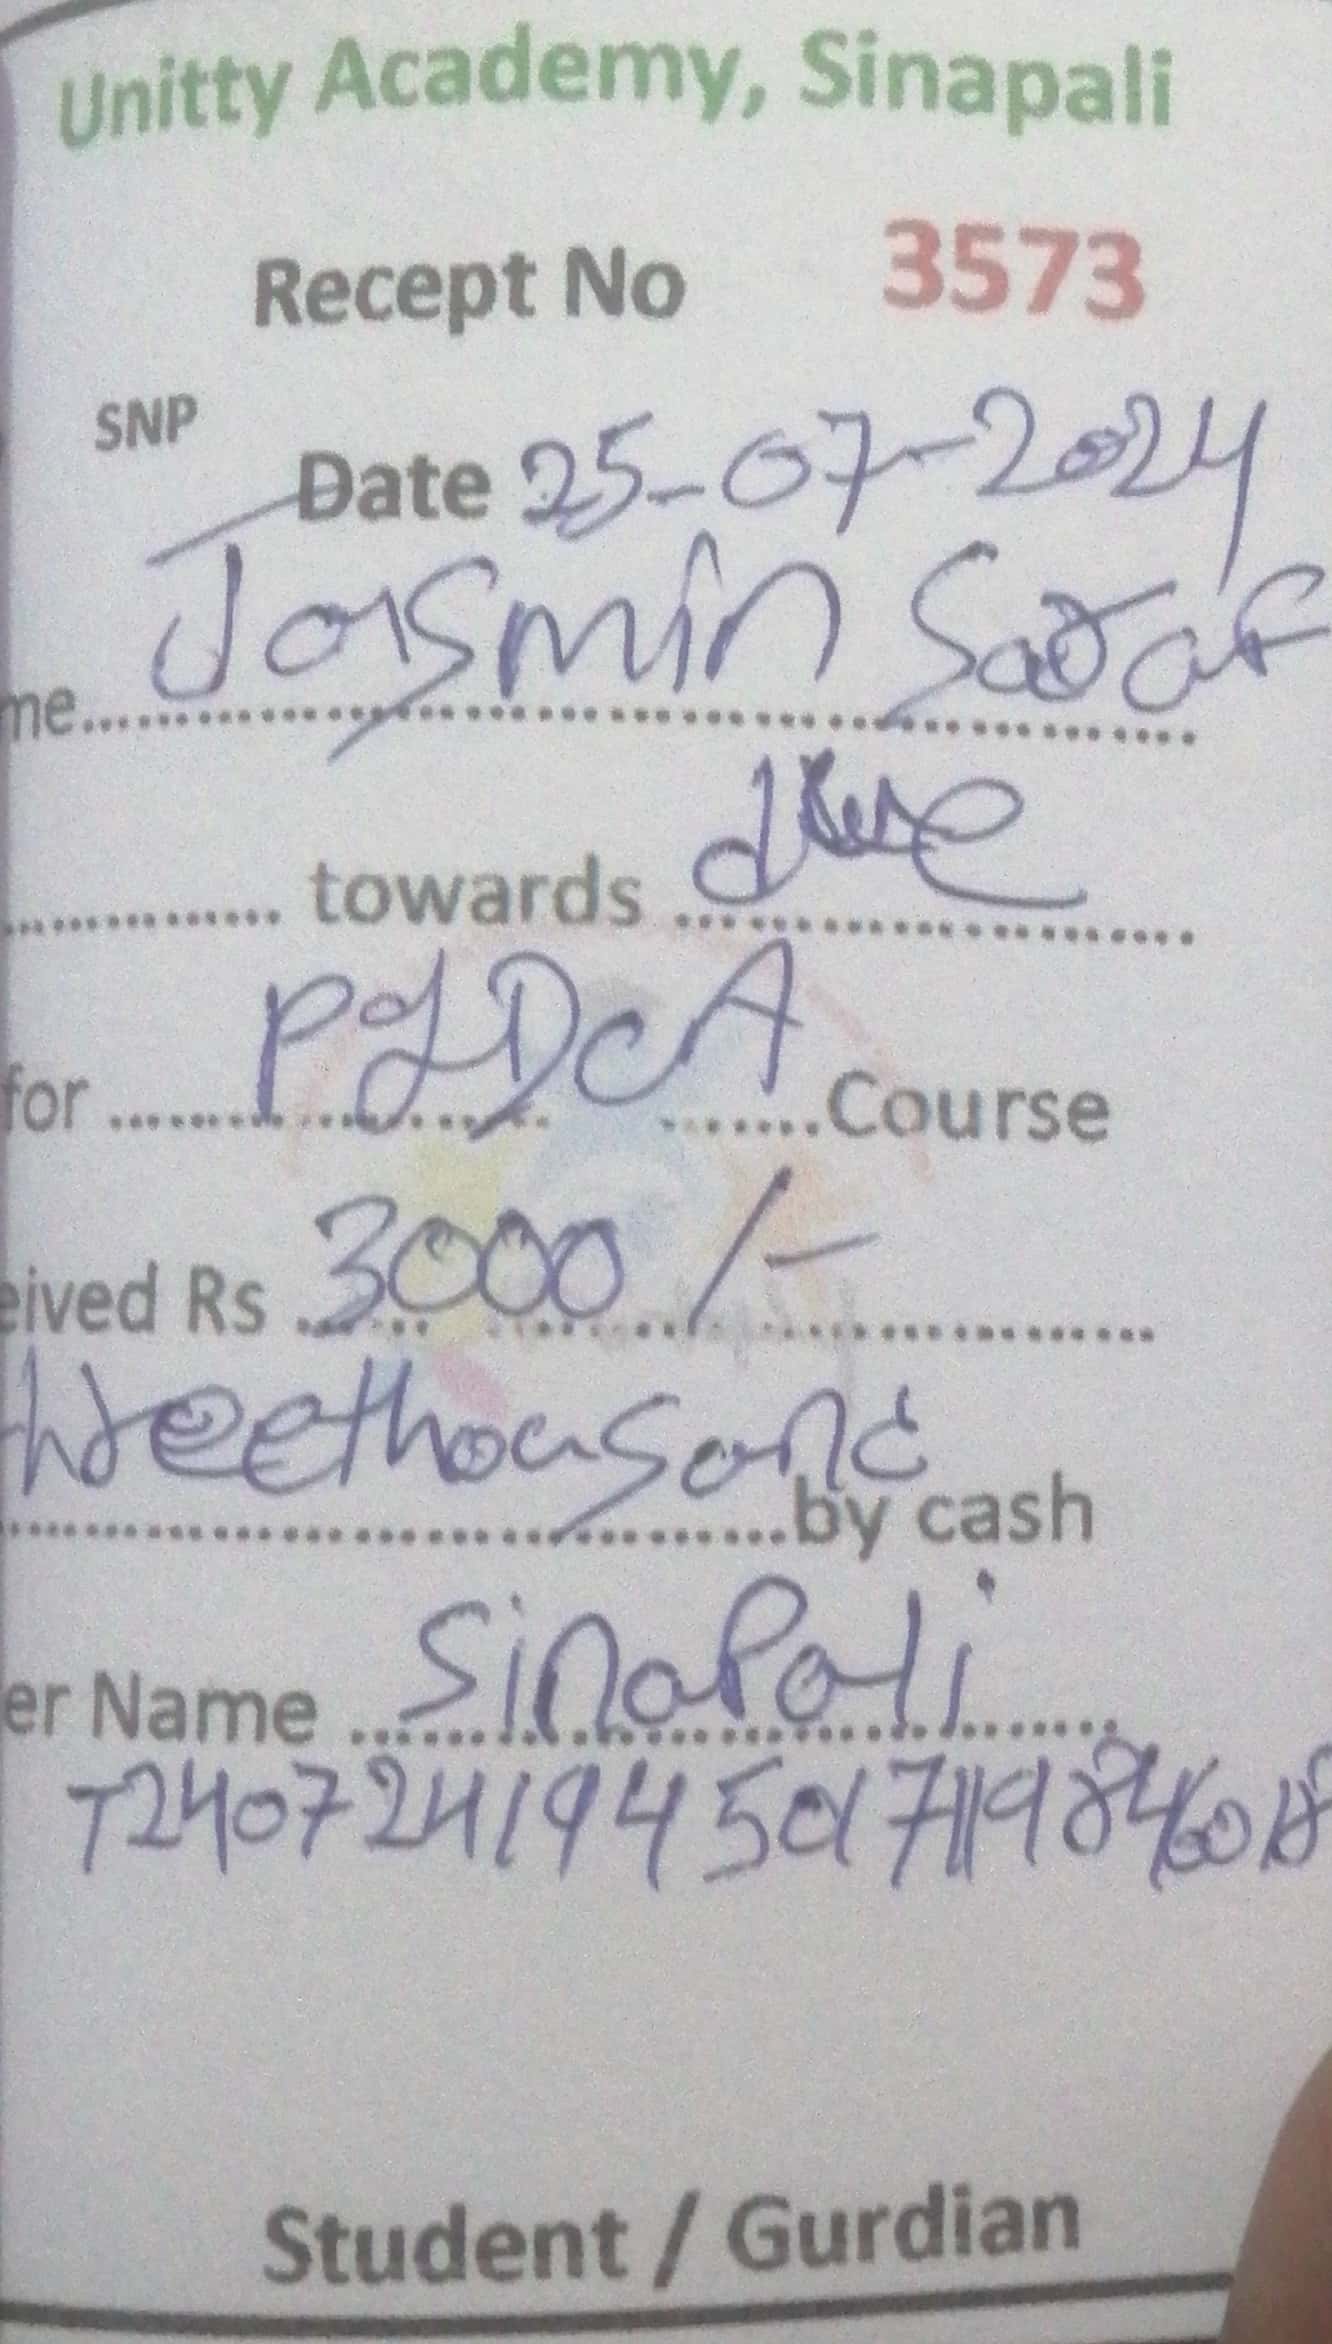 Unitty Academy, Sinapali
Recept No 3573
SNP
Date 25-07-2024
me.......... Jasmin Saraf
............ towards due
for .......... PGDCA .......Course
eived Rs 3000/-
hreethousand
..........by cash
er Name Sinapali
Student / Gurdian